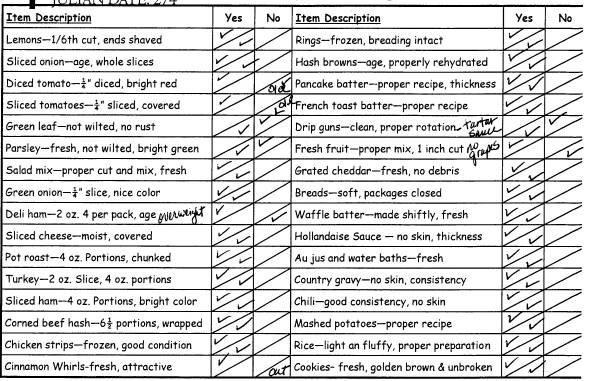 JULIAN DATE: 274
Item Description Yes No Item Description Yes No
Lemons—1/6th cut, ends shaved Rings—frozen, breading intact
Sliced onion—age, whole slices Hash browns—age, properly rehydrated
Diced tomato—¼" diced, bright red old Pancake batter—proper recipe, thickness
Sliced tomatoes—¼" sliced, covered old French toast batter—proper recipe
Green leaf—not wilted, no rust Drip guns—clean, proper rotation tartar sauce
Parsley—fresh, not wilted, bright green Fresh fruit—proper mix, 1 inch cut no grapes
Salad mix—proper cut and mix, fresh Grated cheddar—fresh, no debris
Green onion—¼" slice, nice color Breads—soft, packages closed
Deli ham—2 oz. 4 per pack, age overweight Waffle batter—made shiftly, fresh
Sliced cheese—moist, covered Hollandaise Sauce — no skin, thickness
Pot roast—4 oz. Portions, chunked Au jus and water baths—fresh
Turkey—2 oz. Slice, 4 oz. portions Country gravy—no skin, consistency
Sliced ham—4 oz. Portions, bright color Chili—good consistency, no skin
Corned beef hash—6½ portions, wrapped Mashed potatoes—proper recipe
Chicken strips—frozen, good condition Rice—light an fluffy, proper preparation
Cinnamon Whirls-fresh, attractive out Cookies- fresh, golden brown & unbroken